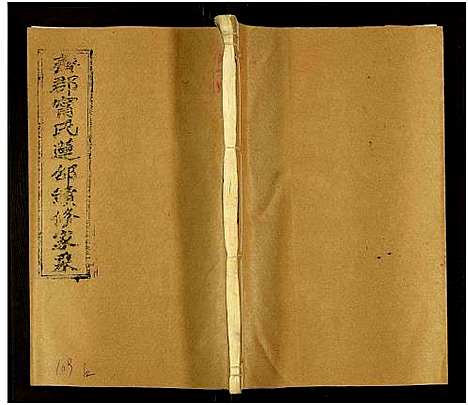 齊郡甯氏蓮邵續修家乘
109